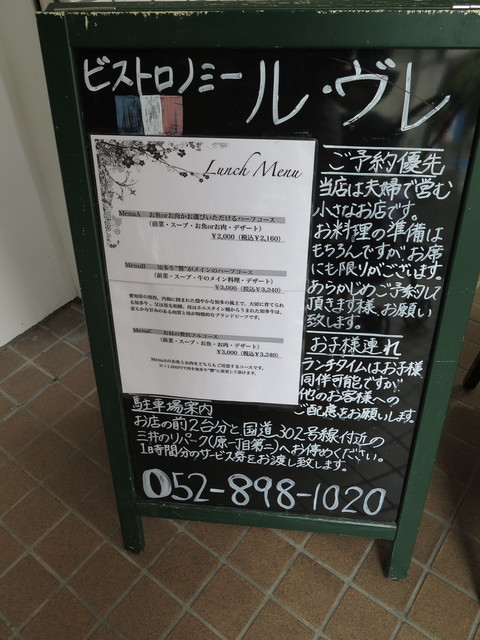 ビストロノミー ル・ヴレ
Lunch Menu
MenuA お魚orお肉がお選びいただけるハーフコース
(前菜・スープ・お魚orお肉・デザート)
¥2,000 (税込¥2,160)
MenuB 知多牛"響"がメインのハーフコース
(前菜・スープ・牛のメイン料理・デザート)
¥3,000 (税込¥3,240)
MenuC お昼の贅沢フルコース
(前菜・スープ・お魚・お肉・デザート)
¥3,000 (税込¥3,240)
MenuAのお魚とお肉をどちらもご用意するコースです。
ご予約優先
当店は夫婦で営む
小さなお店です。
お料理の準備は
もちろんですがお席
にも限りがございます。
あらかじめご予約して
頂きます様、お願い
致します。
お子様連れ
ランチタイムはお子様
同伴可能ですが
他のお客様への
ご配慮をお願いします。
駐車場案内
お店の前2台分と国道302号線付近の
三井のリパーク(原一丁目第二)へお停めください。
1時間分のサービス券をお渡し致します。
052-898-1020